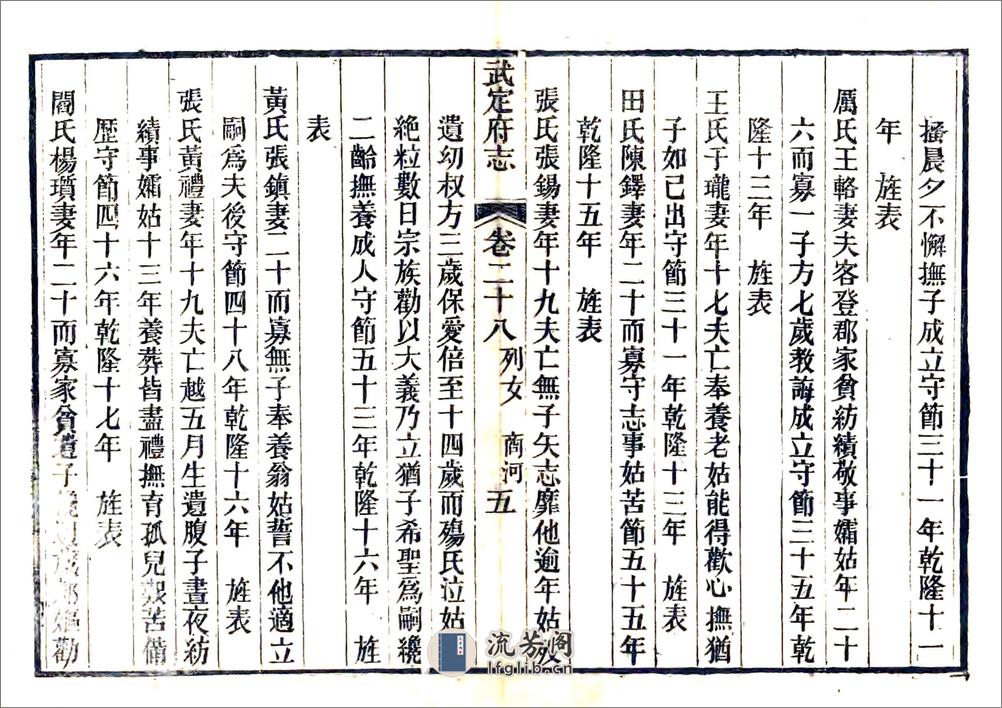 搔晨夕不懈撫子成立守節三十一年乾隆十一
年　旌表
厲氏王輅妻夫客登郡家貧紡績敬事孀姑年二十
六而寡一子方七歲教誨成立守節三十五年乾
隆十三年　旌表
王氏于瓏妻年十七夫亡奉養老姑能得歡心撫猶
子如已出守節三十一年乾隆十三年　旌表
田氏陳鐸妻年二十而寡守志事姑苦節五十五年
乾隆十五年　旌表
張氏張錫妻年十九夫亡無子矢志靡他逾年姑歿
武定府志　卷二十八　列女　商河　五
遺幼叔方三歲保愛倍至十四歲而殤氏泣姑
絶粒數日宗族勸以大義乃立猶子希聖爲嗣纔
二齡撫養成人守節五十三年乾隆十六年　旌
表
黃氏張鎮妻二十而寡無子奉養翁姑誓不他適立
嗣爲夫後守節四十八年乾隆十六年　旌表
張氏黃禮妻年十九夫亡越五月生遺腹子晝夜紡
績事孀姑十三年養葬皆盡禮撫育孤兒艱苦備
歷守節四十六年乾隆十七年　旌表
閻氏楊瓆妻年二十而寡家貧遺子勸
流芳阁
lfglib.cn